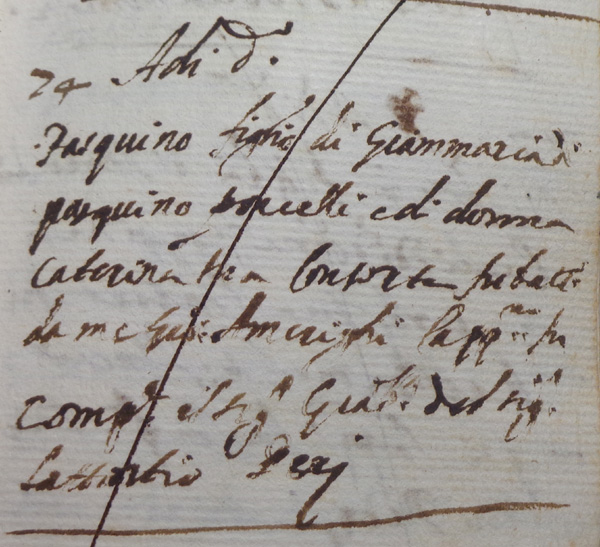 24 Adi d.º
Pasquino figlio di Giammaria di
pasquino porcelli e di donna
Caterina sua Consorte fu batt.º
da me Gio: Amerighi Capp.no fu
comp.e il sig.r Gio: del sig.r
Lattantio Perj